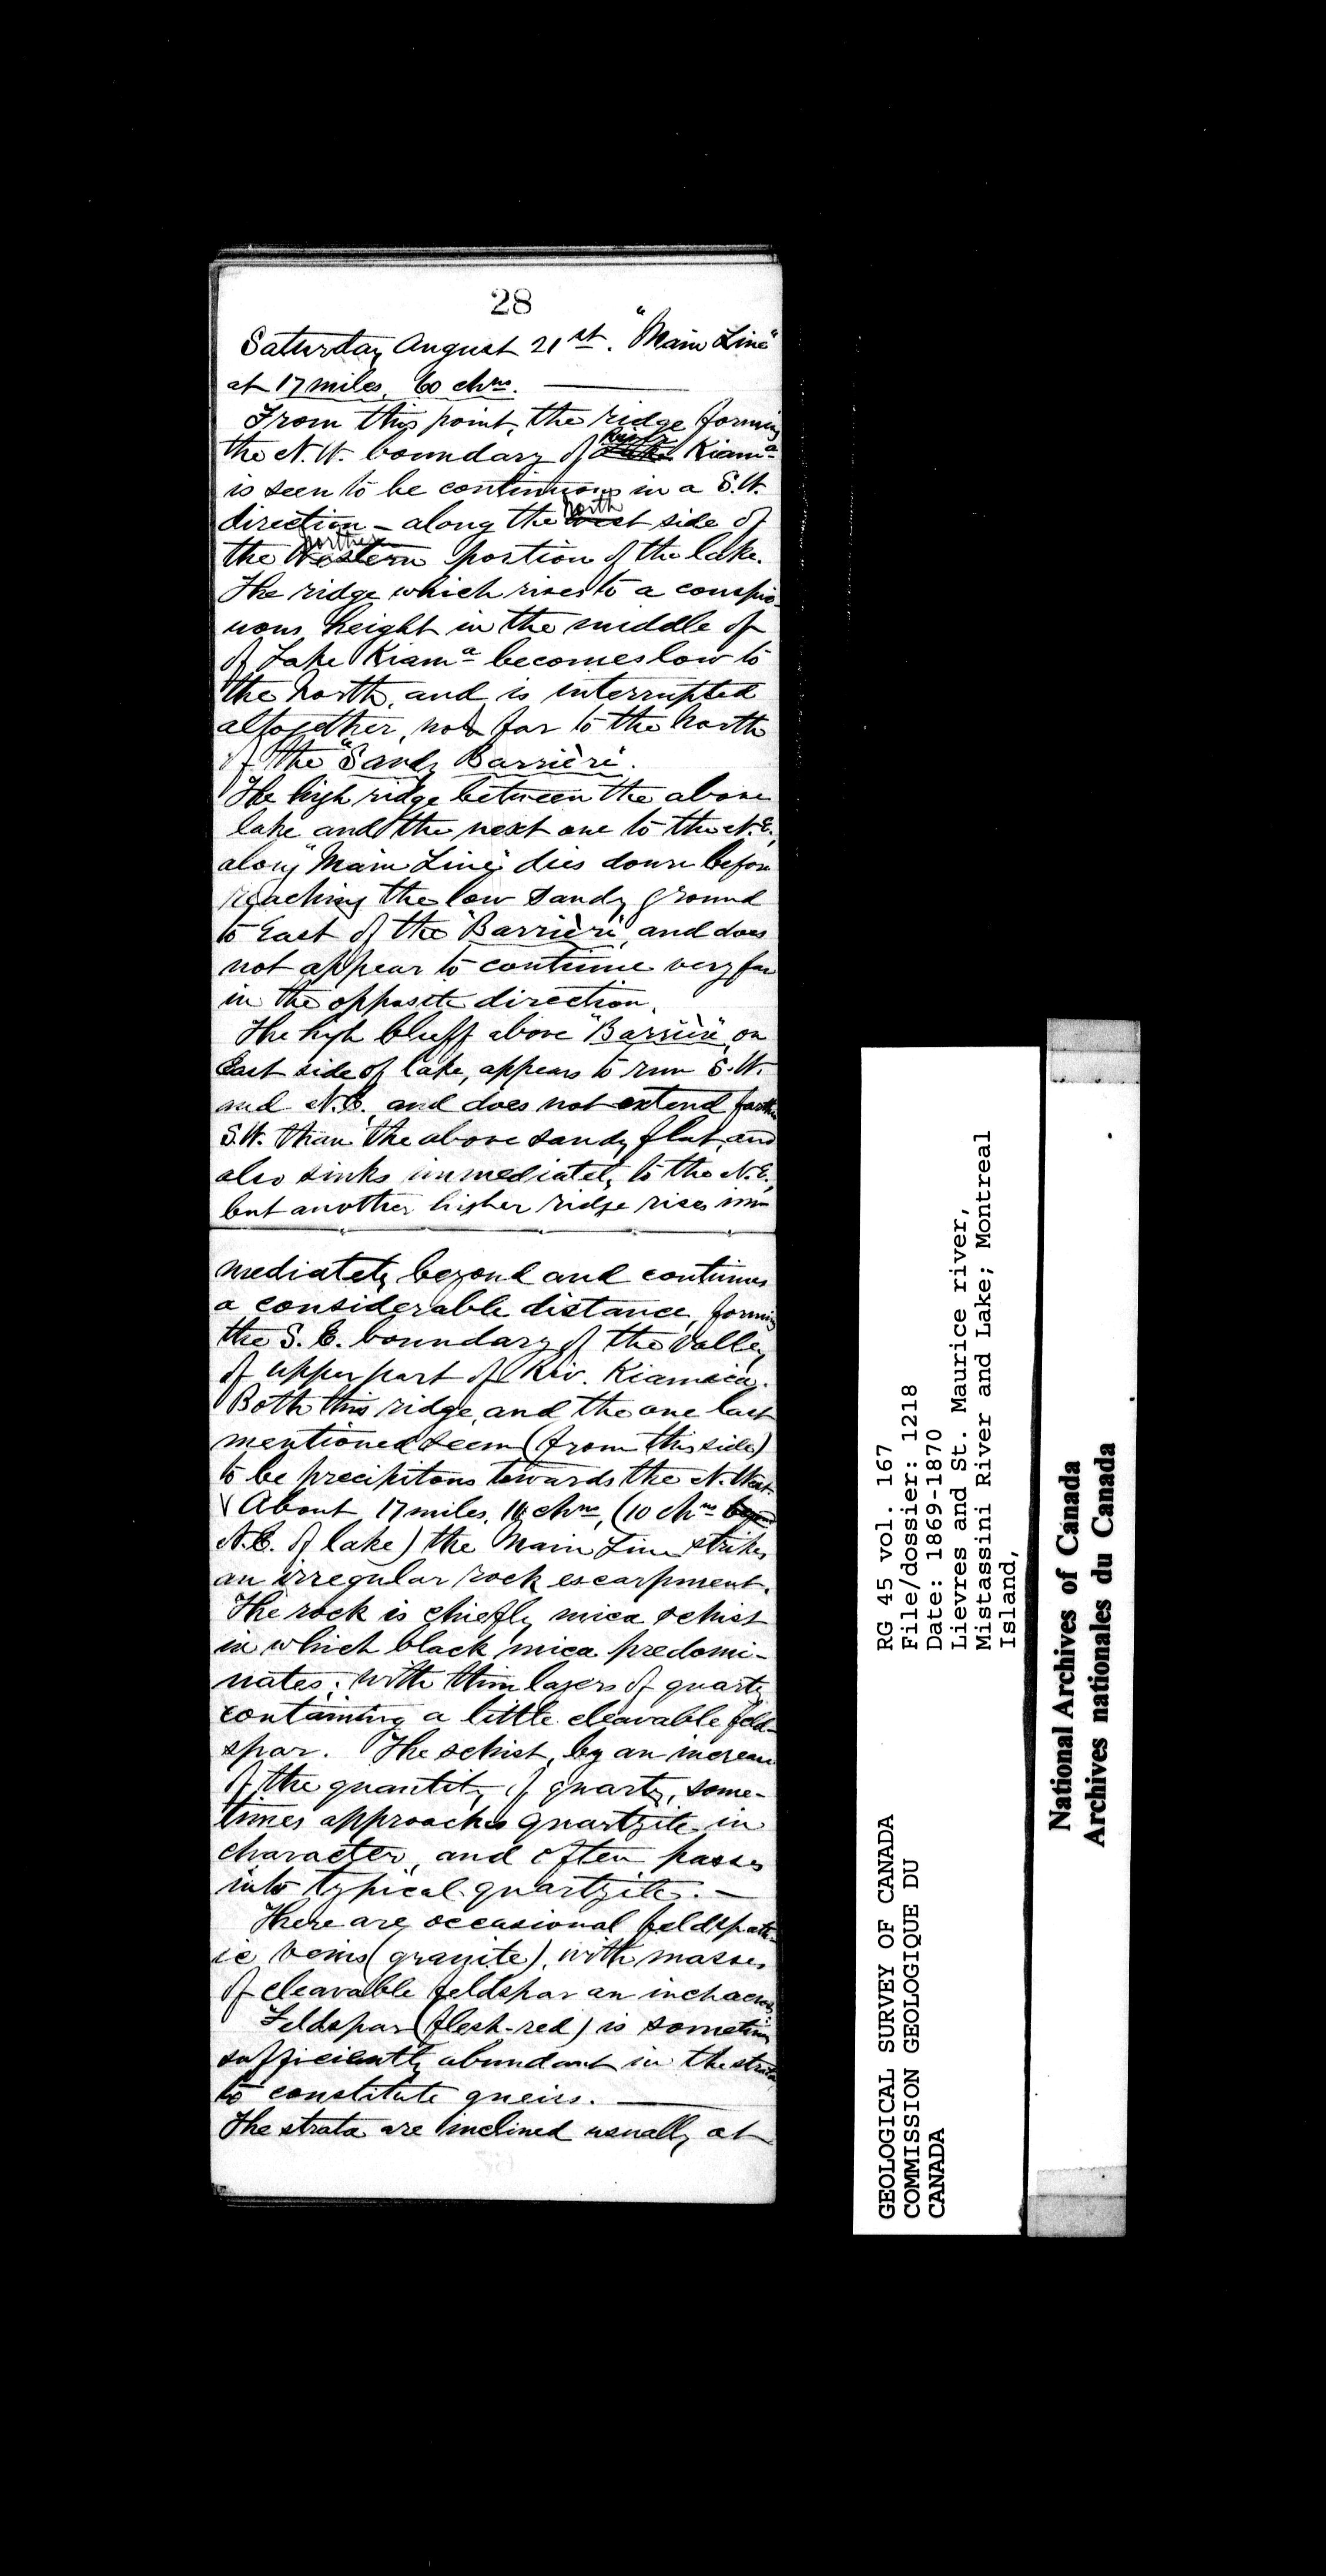 28
Saturday August 21st. "Main Line"
at 17 miles, 60 chns.
From this point, the ridge forming
the N.W. boundary of River Lake Kiama
is seen to be continuous in a S.W.
direction – along the north west side of
the northern Western portion of the lake.
The ridge which rises to a conspic-
uous height in the middle of
of Lake Kiama becomes low to
the North, and is interrupted
altogether, not far to the North
of the "Sandy Barrière".
The high ridge between the above
lake and the next one to the N.E.,
along "Main Line" dies down before
reaching the low sandy ground
to East of the "Barrière", and does
not appear to continue very far
in the opposite direction.
The high bluff above "Barrière", on
East side of lake, appears to run S.W.
and N.E., and does not extend farther
S.W. than the above sandy flat, and
also sinks immediately to the N.E.,
but another higher ridge rises im-
mediately beyond and continues
a considerable distance, forming
the S.E. boundary of the valley
of upper part of Riv. Kiamica.
Both this ridge, and the one last
mentioned seem (from this side)
to be precipitous towards the N.West.
About 17 miles, chns, (10 chns
N.E. of lake) the Main Line strikes
an irregular rock escarpment.
The rock is chiefly mica schist
in which black mica predomi-
nates; with thin layers of quartz
containing a little cleavable feld-
spar. The schist, by an increase
of the quantity of quartz, some-
times approaches quartzite in
character, and often passes
into typical quartzite. —
There are occasional feldspath-
ic veins (granite), with masses
of cleavable feldspar an inch across
Feldspar (flesh-red) is sometimes
sufficiently abundant in the strata
to constitute gneiss.
The strata are inclined usually at
GEOLOGICAL SURVEY OF CANADA
COMMISSION GEOLOGIQUE DU
CANADA
RG 45 vol. 167
File/dossier: 1218
Date: 1869-1870
Lievres and St. Maurice river,
Mistassini River and Lake; Montreal
Island,
National Archives of Canada
Archives nationales du Canada